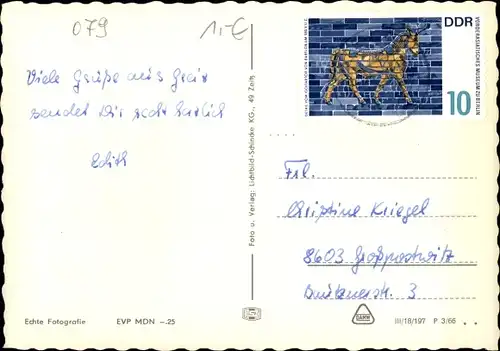 079
1,-€
Viele Grüße aus Greiz
sendet Dir recht herzlich
Edith
Echte Fotografie EVP MDN -.25
Foto u. Verlag: Lichtbild-Schincke KG., 49 Zeitz
DDR
10
VORDERASIATISCHES MUSEUM ZU BERLIN
Frl.
Christine Kriegel
8603 Großpostwitz
Bautznerstr. 3
III/18/197 P 3/66